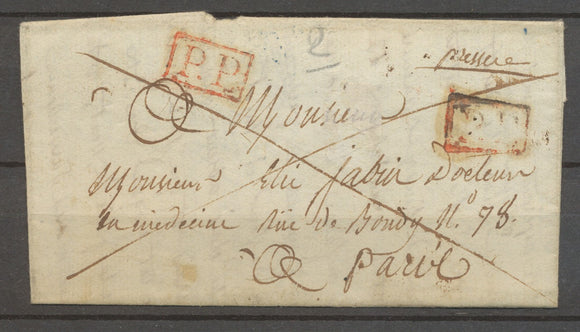 2
P.P.
pressée
Monsieur
P.P.
Monsieur Elie Docteur
en medecine Rue de Bondy N.º 78.
a paris